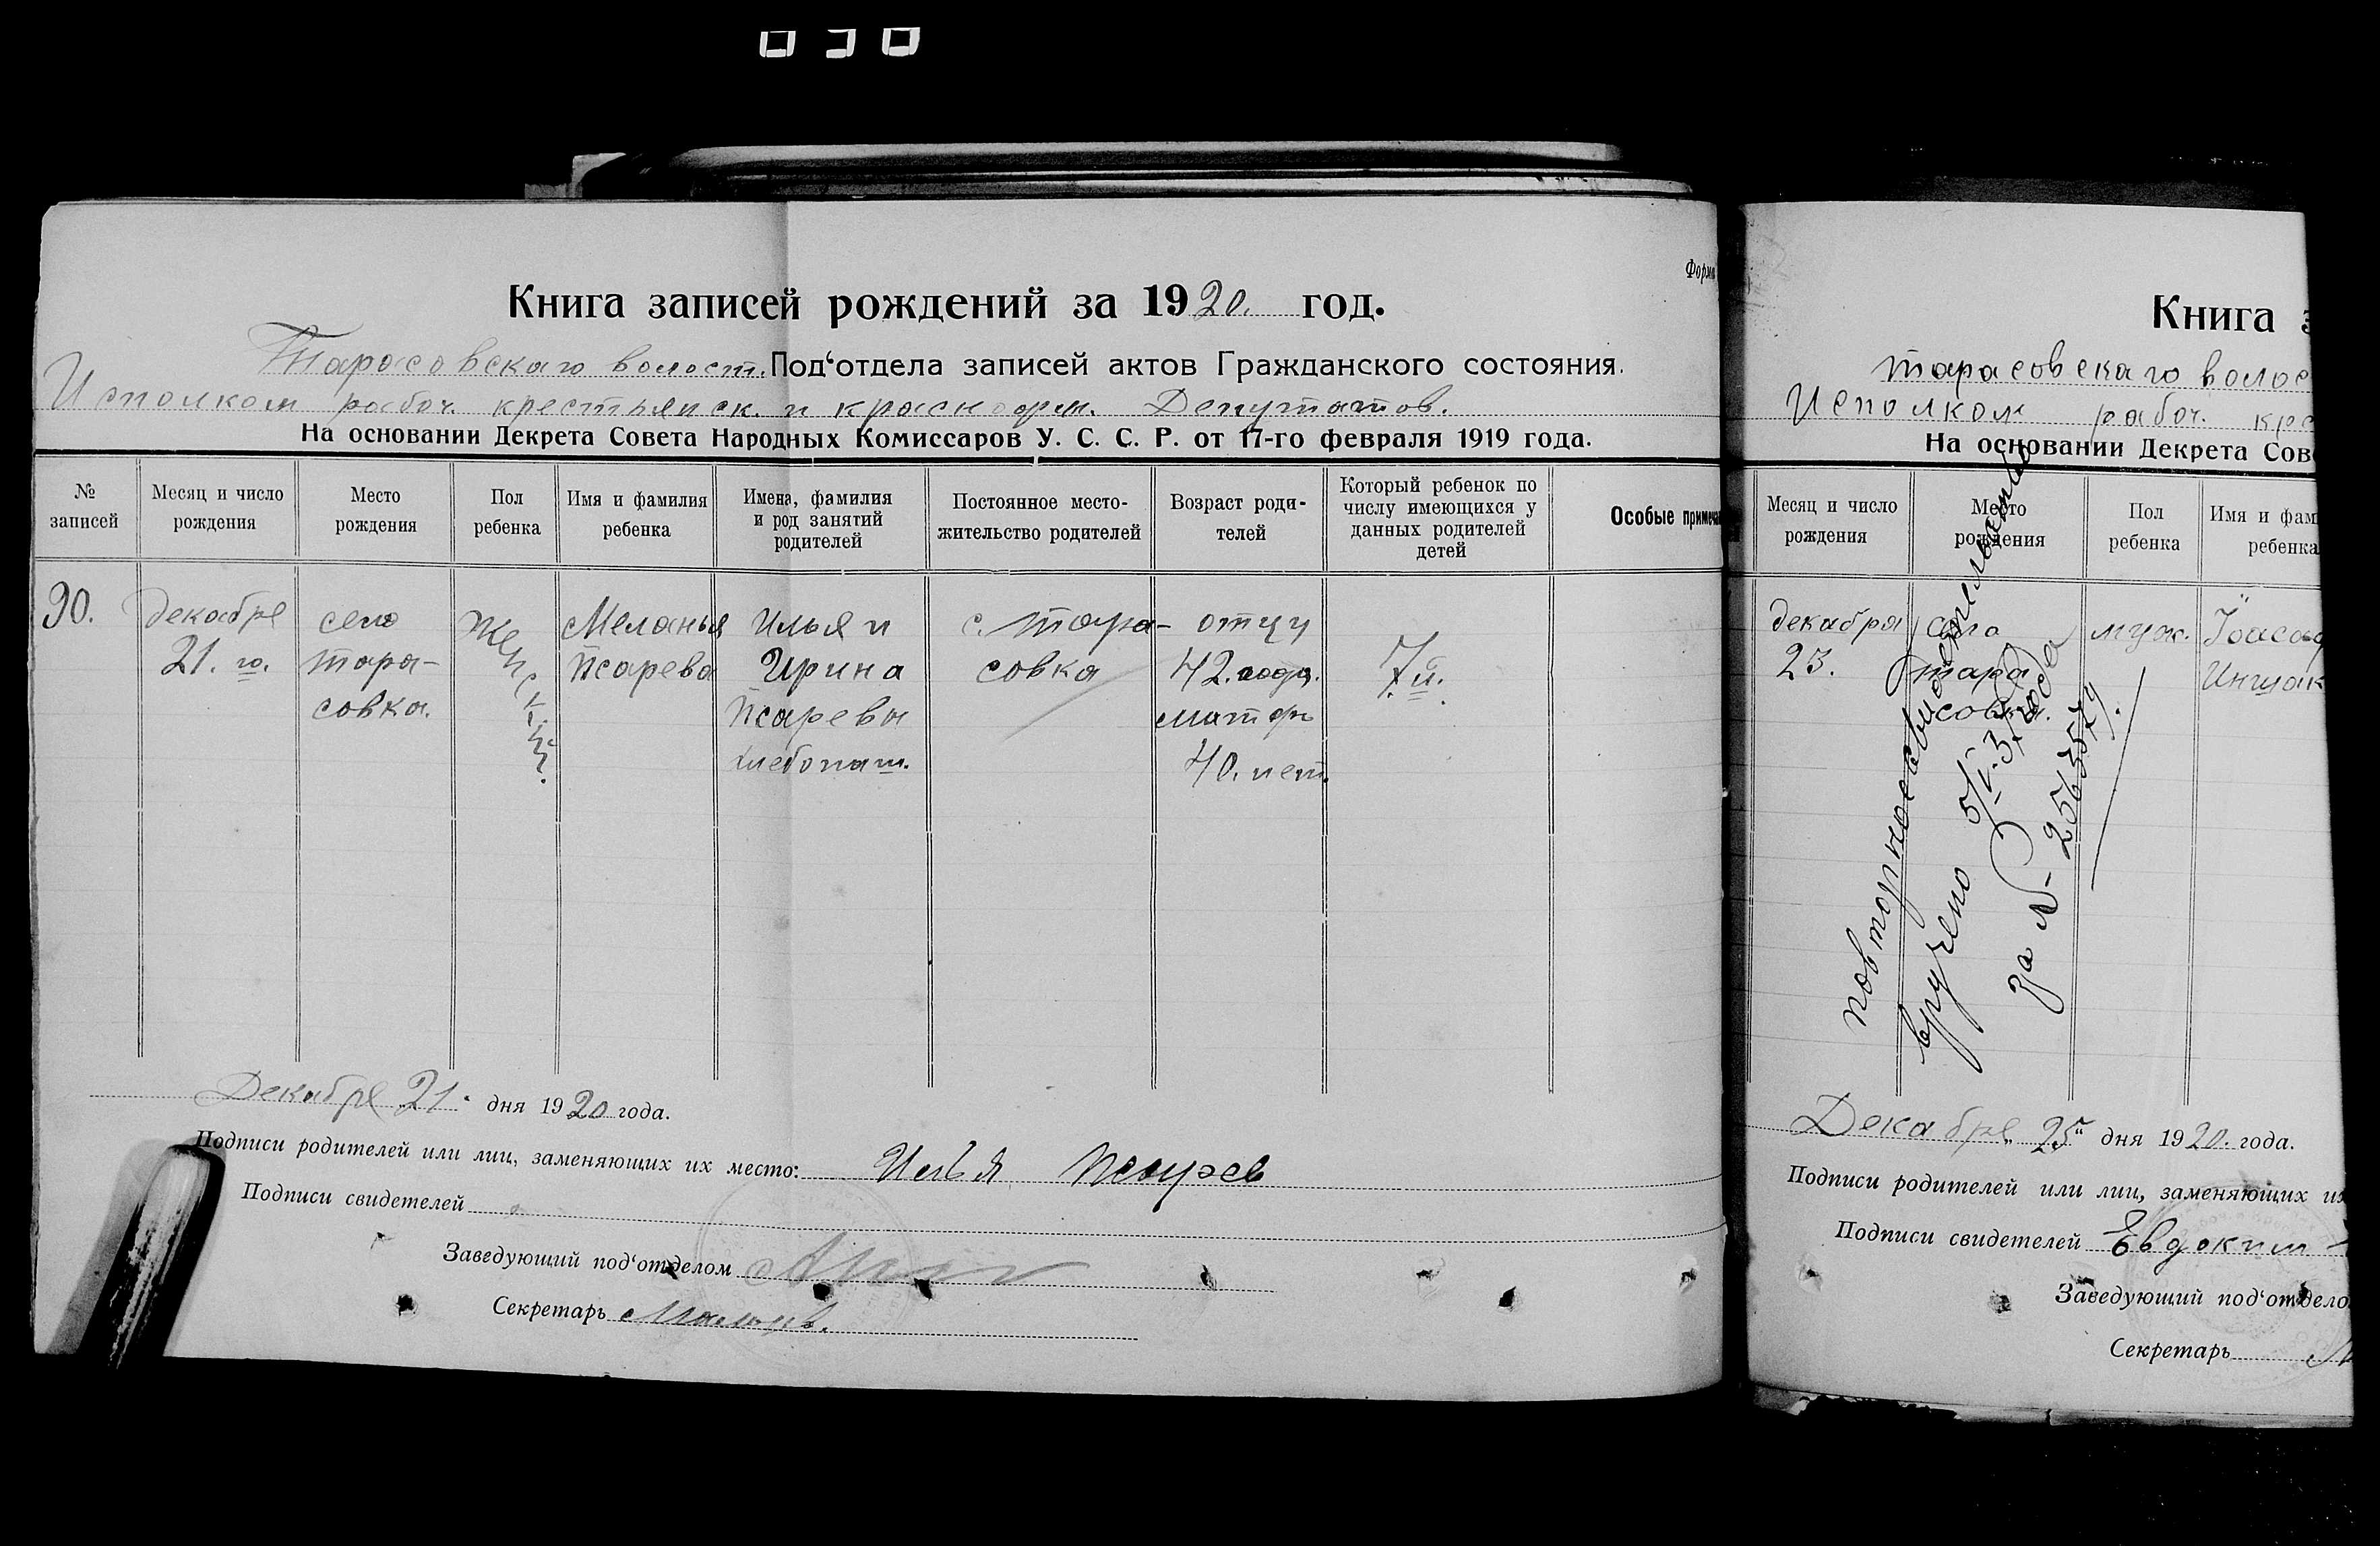 Форма
Книга записей рождений за 1920. год.
Тарасовскаго волост. Под‘отдела записей актов Гражданского состояния.
Исполком рабоч. крестьянск. и красноарм. Депутатов.
На основании Декрета Совета Народных Комиссаров У. С. С. Р. от 17-го февраля 1919 года.
№ записей
Месяц и число рождения
Место рождения
Пол ребенка
Имя и фамилия ребенка
Имена, фамилия и род занятий родителей
Постоянное место-жительство родителей
Возраст роди-телей
Который ребенок по числу имеющихся у данных родителей детей
Особые примеча
90.
Декабре 21. го.
село Тара-совка.
Женский.
Меланья Псарева
Илья и Ирина Псаревы хлебопаш.
с. Тара-совка
отцу 42. года. матери 40. лет.
7й.
Декабре 21. дня 1920 года.
Подписи родителей или лиц, заменяющих их место: Илья Псарев
Подписи свидетелей
Заведующий под‘отделом
Секретарь
Книга з
Тарасовскаго волос
Исполком рабоч. кре
На основании Декрета Сов
Месяц и число рождения
Место рождения
Пол ребенка
Имя и фам ребенка
Декабря 23.
село Тара совка.
муж.
Повторное свид
вручено 5/V. 37 года
за № 2563574.
Декабре 25 дня 1920. года.
Подписи родителей или лиц, заменяющих их
Подписи свидетелей Евдоким
Заведующий под‘отдело
Секретарь